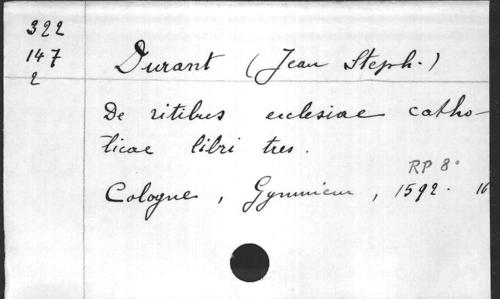 322
147
2
Durant (Jean Steph.)
De ritibus ecclesiae catho-
licae libri tres.
RP 8°
Cologne, Gymnicum, 1592. 16